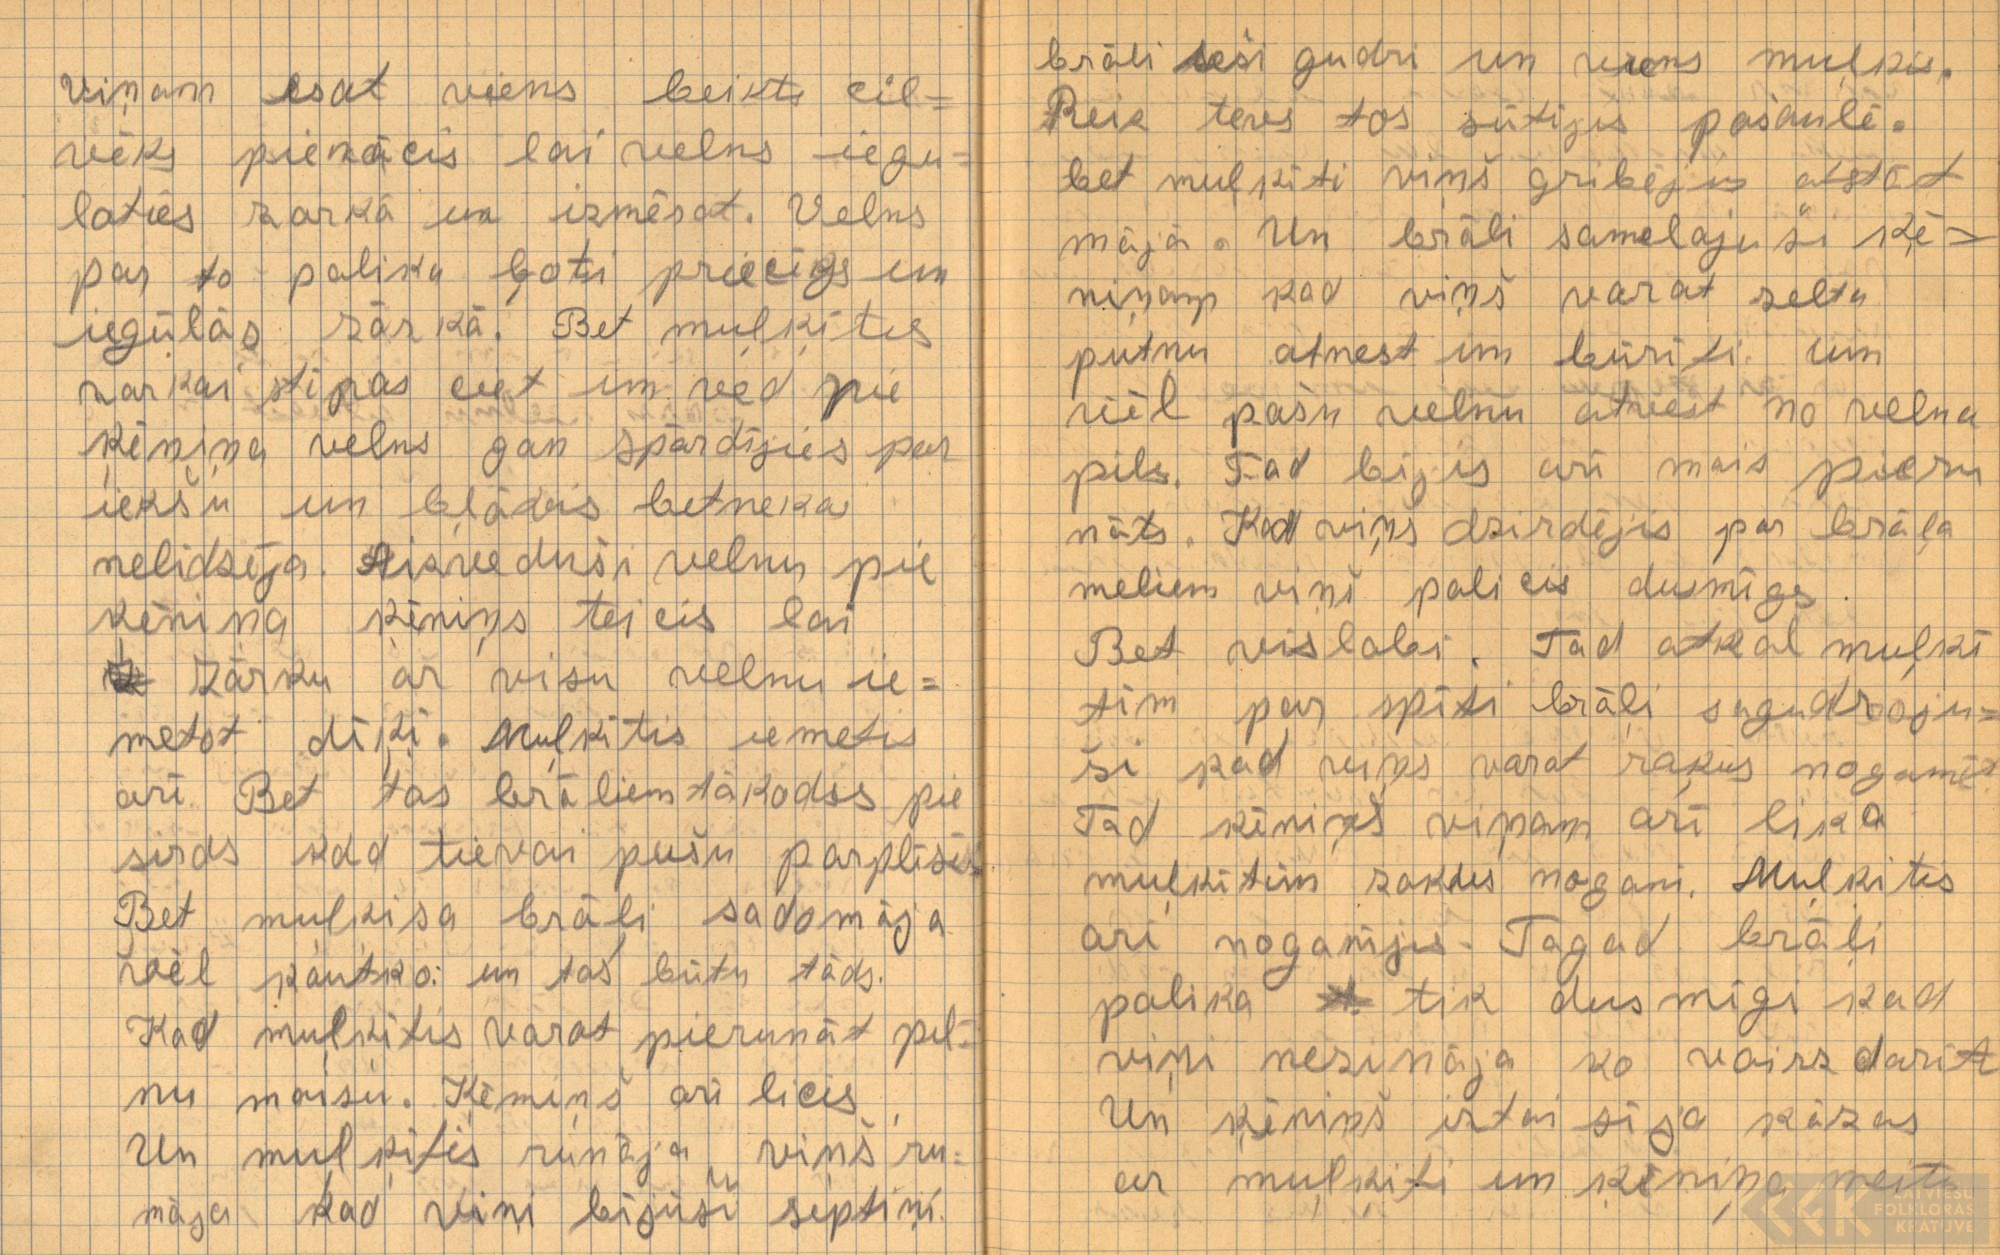 Viņam esat viens beikts cil=
vēks piemācis lai velns iegu=
laties zarkā un izmēsat. Velns
par to palika ļoti priecigs un
iegūlās zārkā. Bet muļķitis
zarkai stipas ciet un ved pie
ķēniņa velns gan spārdijies par
iekšu un bļādais betnekas
nelidzēja. Aizveduši velnu pie
ķēniņa ķēniņs teicis lai
zārku ar visu velnu ie=
metot dīķi. Muļķitis iemetis
ari Bet tas brāliem tākodss pie
sirds kad tievai pušu parplīsis
Bet muļkisa brāli sadomāja
vēl kautko: un tas būtu tāds.
Kad muļķitis varot pierunāt pil=
nu maisu. Ķēmiņš ari licis
Un mulķitis runāja viņš ru=
nāja kad viņi bijuši septiņi.
brāli seši gudri un viens muļķis.
Reik tevs tos sūtijis pašaulē.
bet muļķiti viņš gribējis atstāt
mājā. Un brāli samelajuši ķē=
niņam kad viņš varat zelta
putnu atnest un būrīti. un
viēl pašu velnu atvest no velna
pils. Tad bijis ari mais pieru
nāts. Kad viņs dzirdējis par brāļa
meliem viņš palicis dusmīgs.
Bet vislabi. Tad atkal muļķi
tim par spīti brāļi sagudrooju=
ši kad viņs varat zaķus noganīt
Tad ķēniņš viņam arī lika
muļķitim zaķus nogani. Muļķitis
ari noganijis. Tagad brāļi
palika tik dusmīgi kad
viņi nezināja ko vairs darīt
Un ķēniņš iztaisīja kāzas
ar muļķiti un ķēniņa meitu
LATVIEŠU
FOLKLORAS
KRĀTUVE